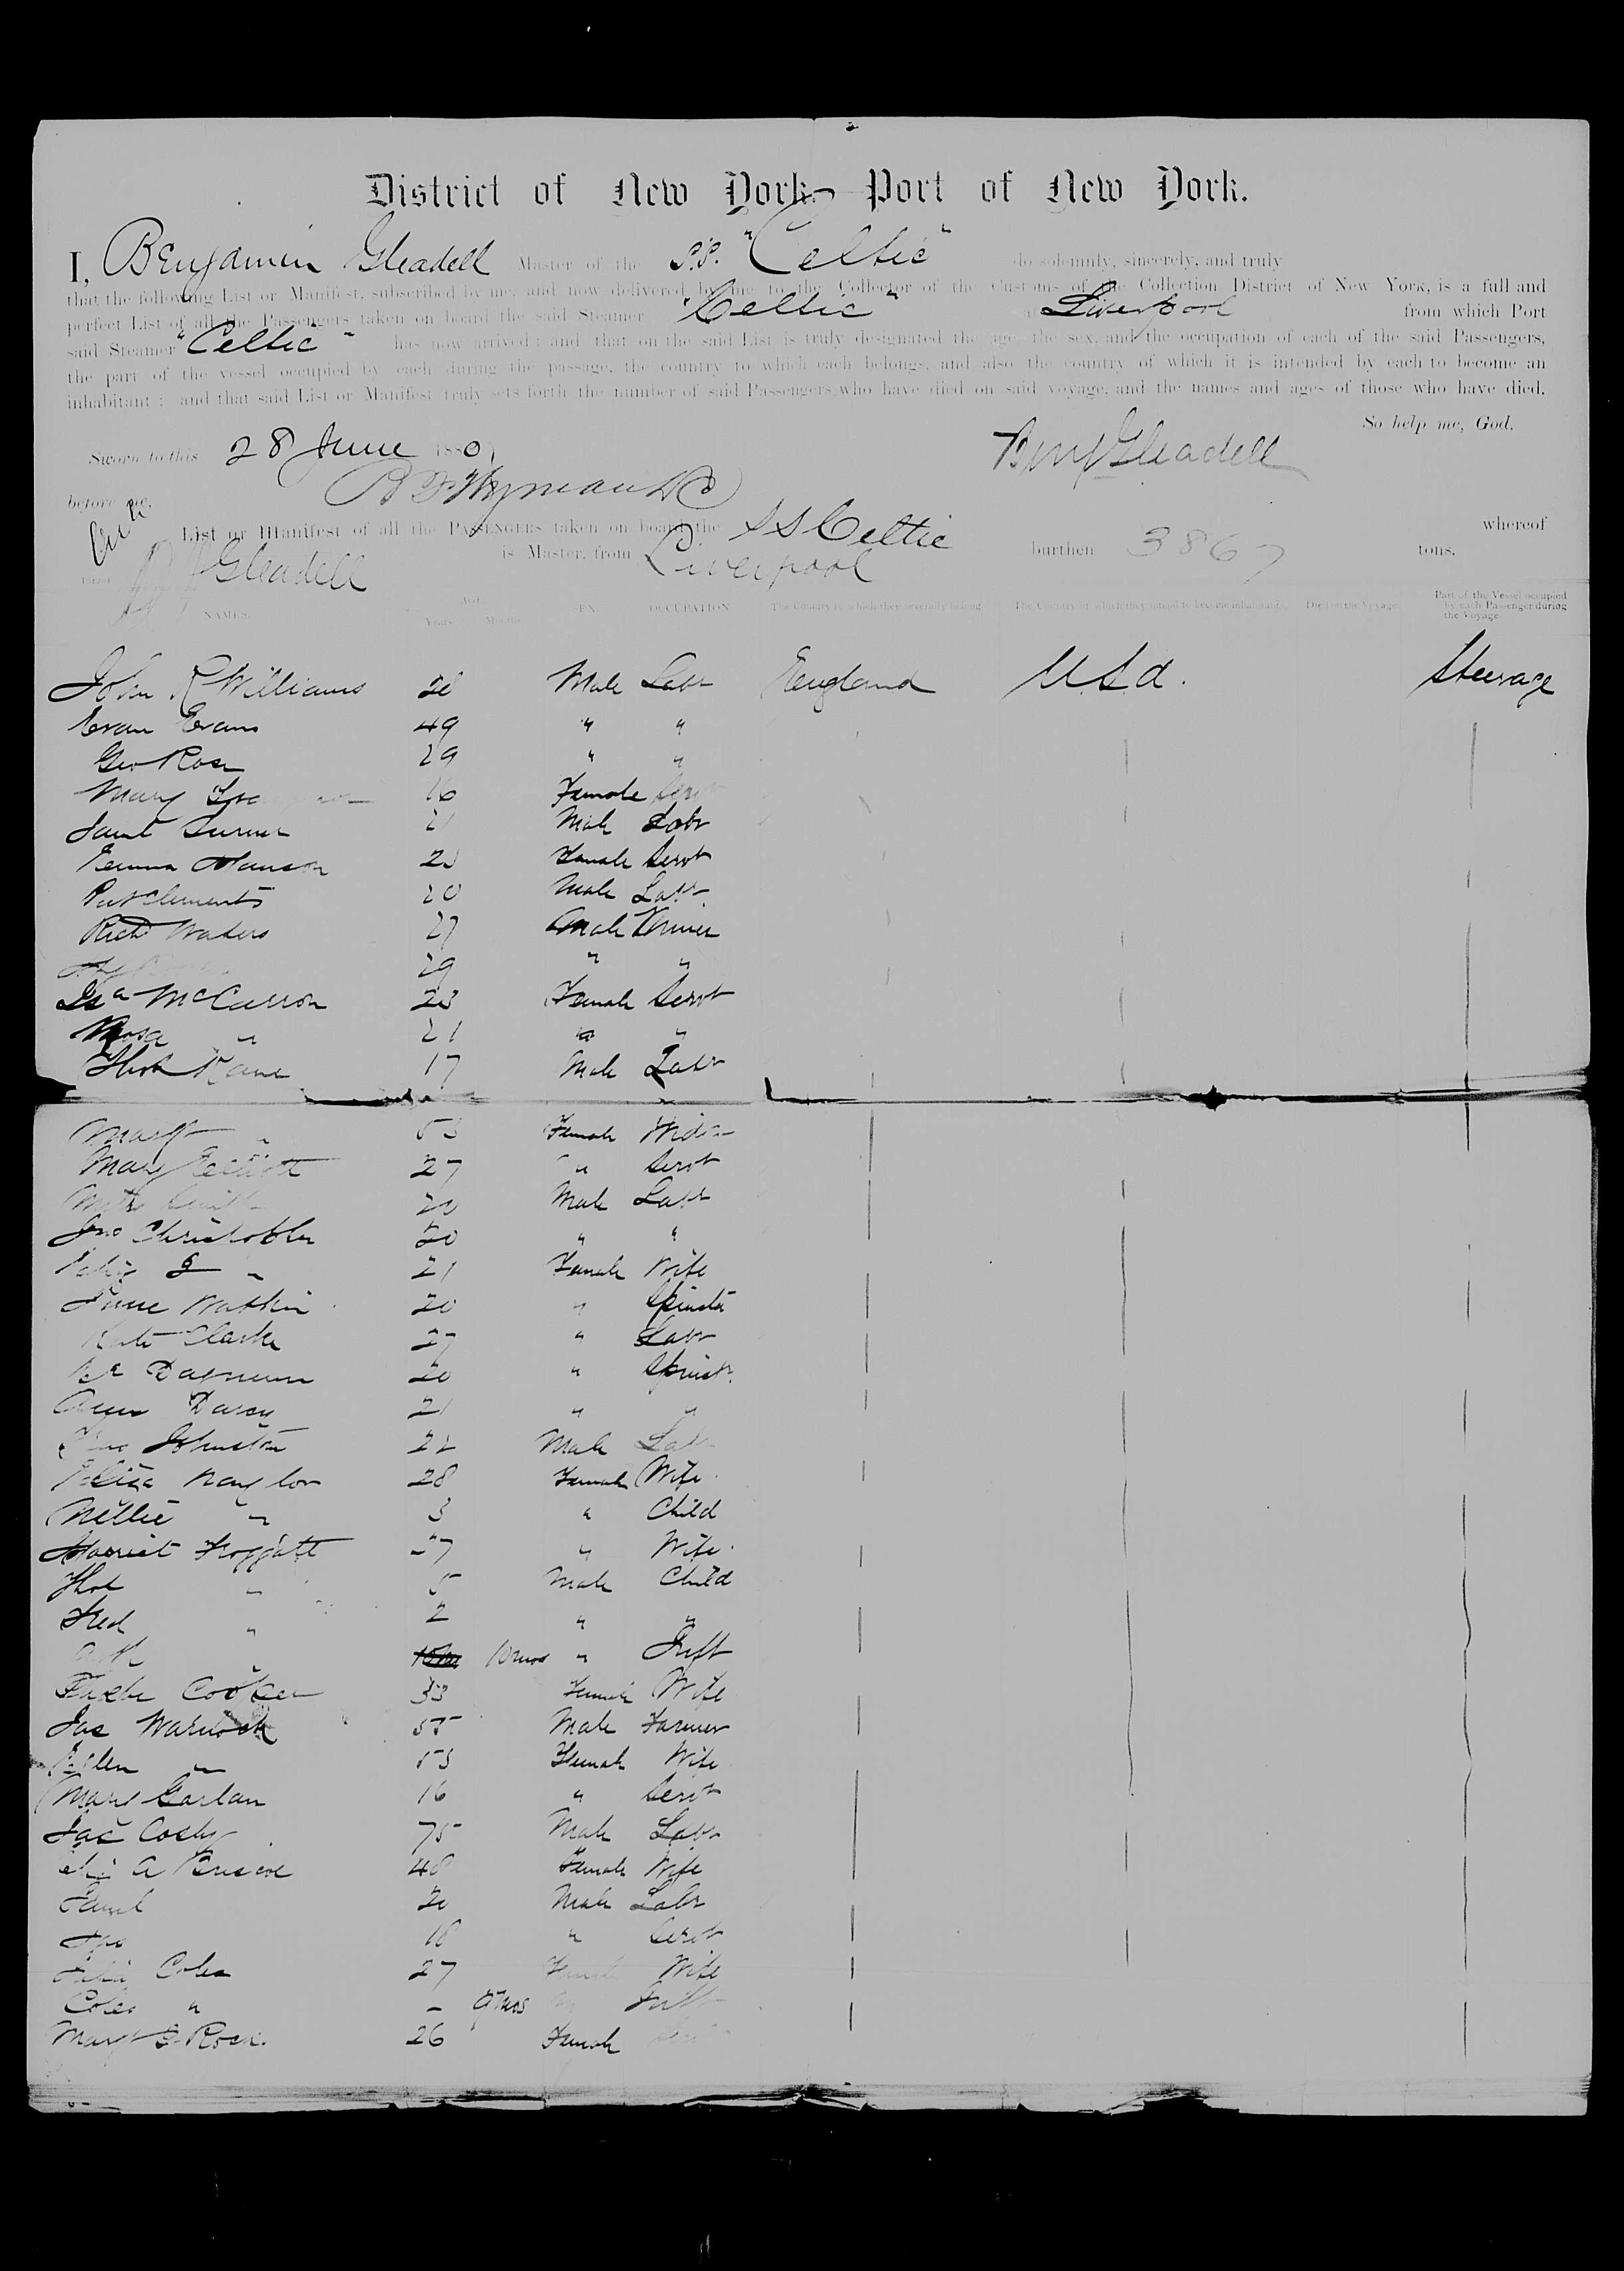 District of New York, Port of New York.
I, Benjamin Gleadell Master of the S.S. "Celtic" do solemnly, sincerely, and truly
that the following List or Manifest, subscribed by me, and now delivered by me to the Collector of the Customs of the Collection District of New York, is a full and
perfect List of all the Passengers taken on board the said Steamer "Celtic" Liverpool from which Port
said Steamer "Celtic" has now arrived: and that on the said List is truly designated the age, the sex, and the occupation of each of the said Passengers,
the part of the vessel occupied by each during the passage, the country to which each belongs, and also the country of which it is intended by each to become an
inhabitant: and that said List or Manifest truly sets forth the number of said Passengers who have died on said voyage, and the names and ages of those who have died.
So help me, God.
Sworn to this 28 June 1880, Benj Gleadell
before me,
List or Manifest of all the PASSENGERS taken on board the SS Celtic whereof
Gleadell is Master, from Liverpool burthen 3867 tons.
NAMES. AGE. Years. Months. SEX. OCCUPATION. The Country to which they severally belong. The Country of which they intend to become inhabitants. Died on the Voyage. Part of the Vessel occupied by each Passenger during the Voyage.
John R Williams 28 Male Labr England U.S.A. Steerage
Evan Evans 49 " "
Geo Rose 29 " "
Mary 16 Female Servt
Saml Turner 21 Male Labr
Emma Hanson Female Servt
Pat Clements 20 Male Labr
Richd Waters 27 Male
29 " "
McCarron 23 Female Servt
Rosa " 21 " "
Thos Kane 17 Male Labr
Margt " 53 Female Widow
Mary Elliott 27 " Servt
20 Male Labr
Jno Christopher 20 " "
" 21 Female Wife
Jane Watkin 20 " Spinstr
Kate Clarke 27 " Labr
20 " Spinstr
Ann Darcy 21 " "
Johnston 22 Male Labr
Eliza Naylor 28 Female Wife
Nellie " 3 " Child
Harriet Froggatt 27 " Wife
Thos " 5 Male Child
Fred " 2 " "
" 10 mos " Inft
Phebe Cooper 33 Female Wife
Jas Warnock 55 Male Farmer
Ellen " 53 Female Wife
Mary Garlan 16 " Servt
Jas Cosby 75 Male Labr
A Briscoe 48 Female Wife
Saml 20 Male Labr
18 " Servt
Coles 27 Female Wife
Coles " - 9 mos Inft
Margt Rose 26 Female